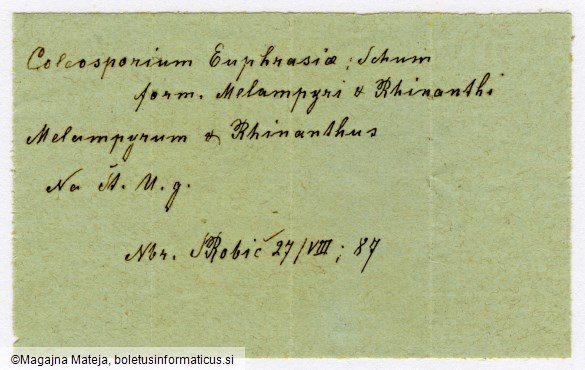 Coleosporium Euphrasiæ; Schum
form. Melampyri & Rhinanthi
Melampyrum & Rhinanthus
Na Št. M. g.
Nbr. SRobič 27/VIII; 87
©Magajna Mateja, boletusinformaticus.si